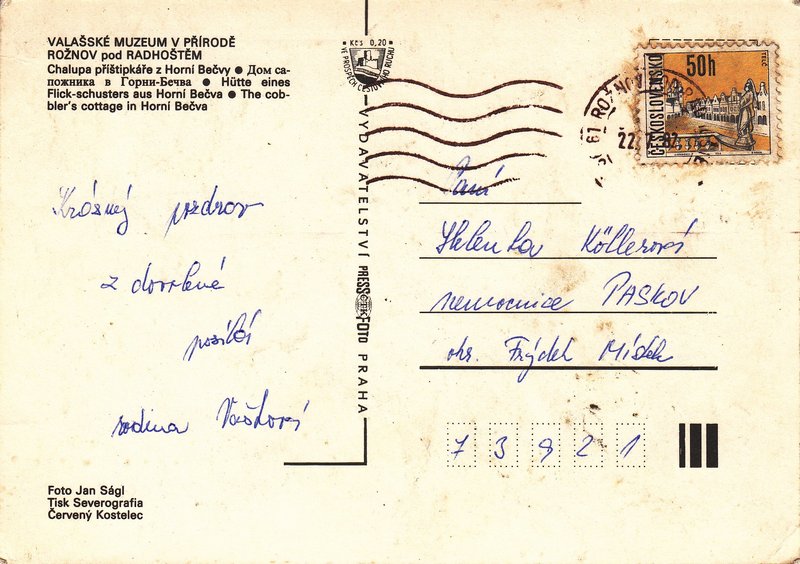 VALAŠSKÉ MUZEUM V PŘÍRODĚ
ROŽNOV pod RADHOŠTĚM
Chalupa příštipkáře z Horní Bečvy ● Дом са-
пожника в Горни-Бечва ● Hütte eines
Flick-schusters aus Horní Bečva ● The cob-
bler's cottage in Horní Bečva
Krásný pozdrav
z dovolené
posílá
rodina
Foto Jan Ságl
Tisk Severografia
Červený Kostelec
Kčs 0,20
VE PROSPĚCH CESTOVNÍHO RUCHU
VYDAVATELSTVÍ PRESSFOTO PRAHA
ČESKOSLOVENSKO
50h
22. 7. 87
Paní
Helenka Köllerová
nemocnice PASKOV
okr. Frýdek Místek
73921